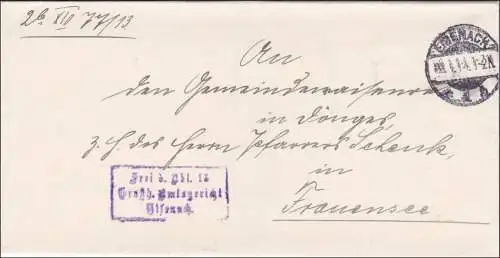 2b XIII 77/13
EISENACH
1.14. 1-2N.
An
den Gemeindewaisenra
in Dönges,
z. H. des Herrn Pfarrers Schenk,
in
Frauensee
Frei d. Abl. 16
Großh. Amtsgericht
Eisenach.